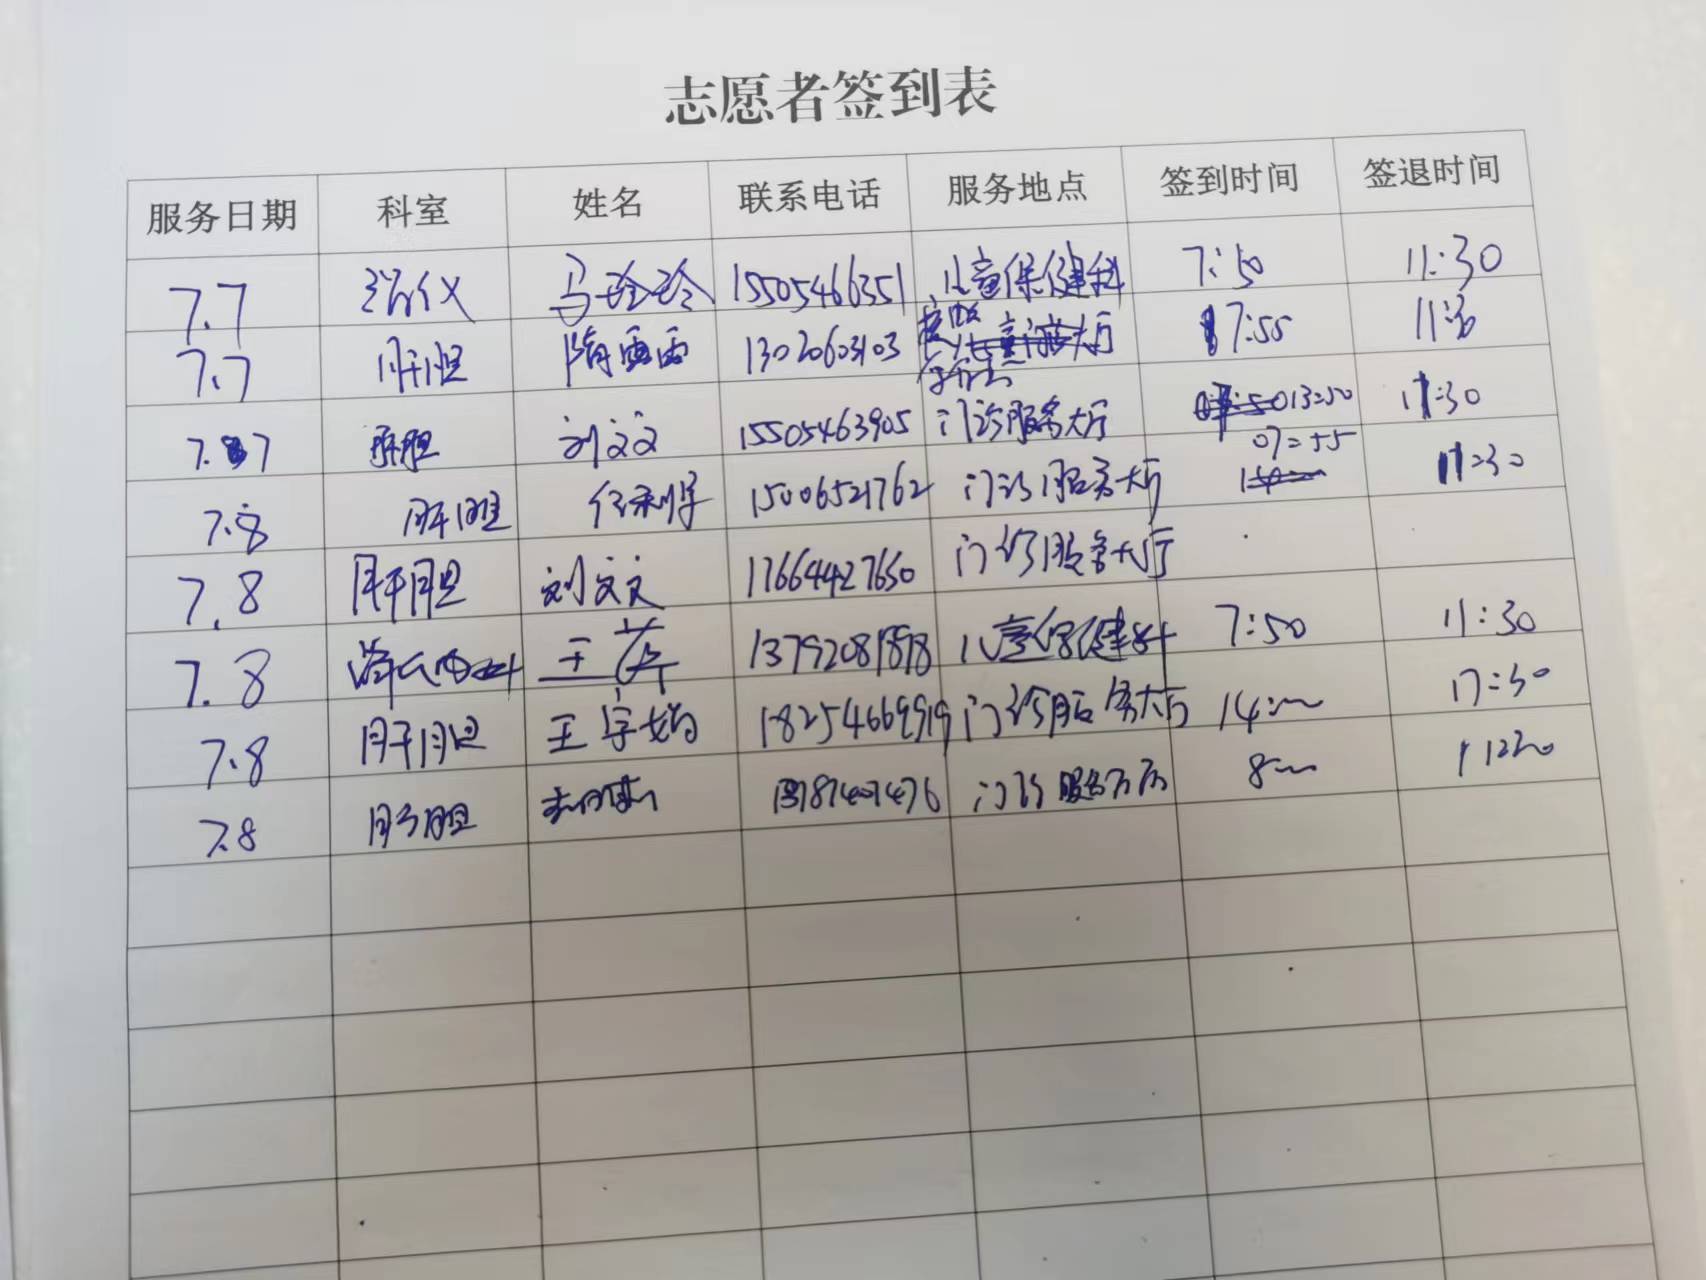 志愿者签到表
服务日期 科室 姓名 联系电话 服务地点 签到时间 签退时间
7.7 马玲玲 15505466351 儿童保健科 7:50 11:30
7.7 肝胆 隋雪雪 13020603103 大厅 7:55
7.7 肝胆 刘文文 15505463905 门诊服务大厅 13:50 11:30
7.8 肝胆 15006521762 门诊服务大厅 07:55 11:30
7.8 肝胆 刘文文 17664427650 门诊服务大厅
7.8 王萍 13792081898 儿童保健科 7:50 11:30
7.8 肝胆 18254669919 门诊服务大厅 14:00 17:30
7.8 肝胆 门诊服务大厅 8:00